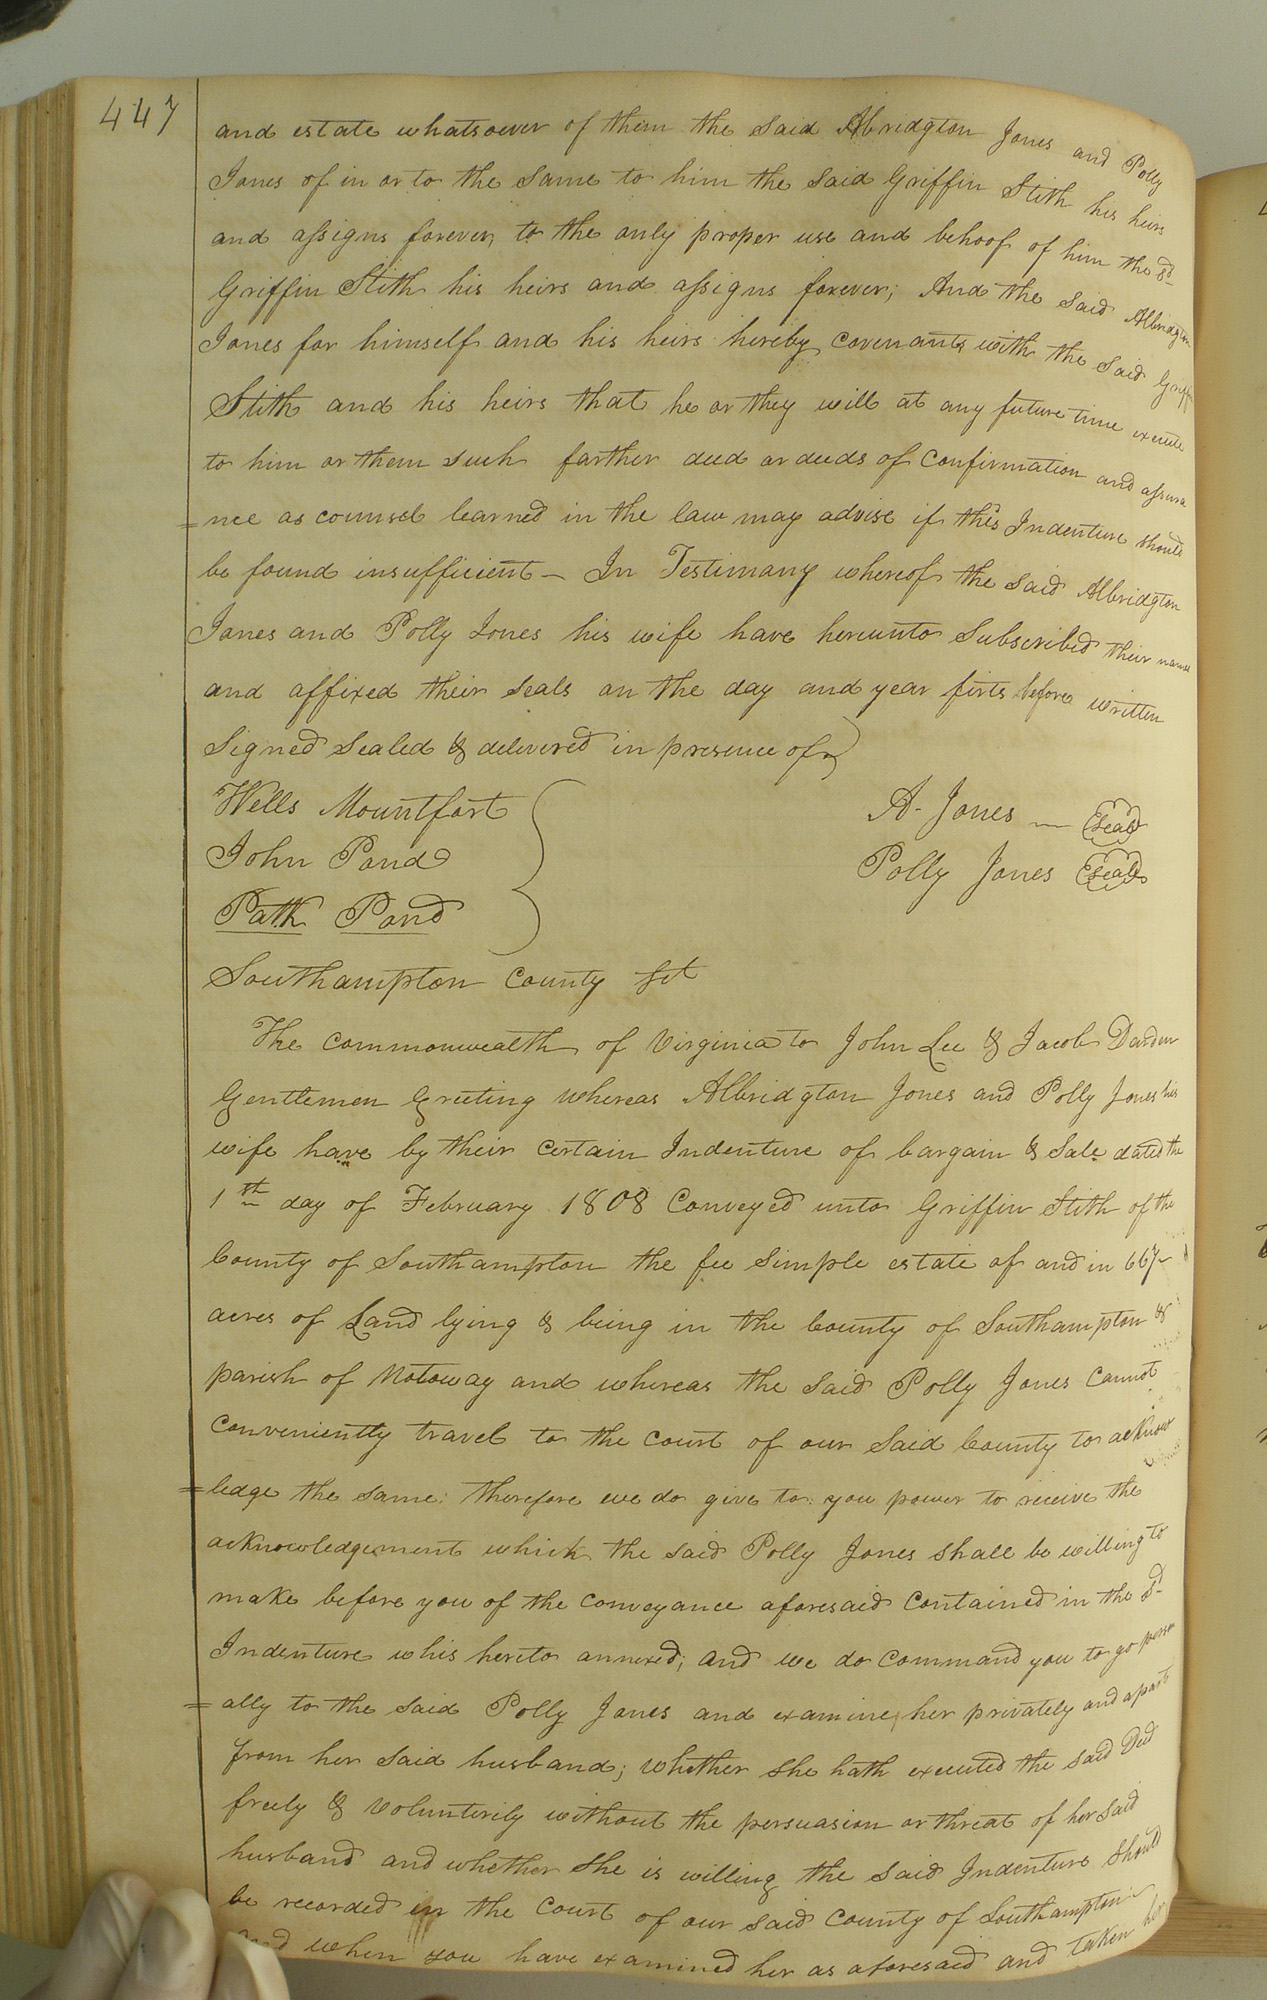 447
and estate whatsoever of them the said Albridgton Jones and Polly
Jones of in or to the same to him the said Griffin Stith his heirs
and assigns forever, to the only proper use and behoof of him the sd
Griffin Stith his heirs and assigns forever; And the said Albridgton
Jones for himself and his heirs hereby covenants with the said Griffin
Stith and his heirs that he or they will at any future time execute
to him or them such farther deed or deeds of Confirmation and assura
=nce as counsel learned in the law may advise if this Indenture should
be found insufficient - In Testimony whereof the said Albridgton
Jones and Polly Jones his wife have hereunto Subscribed their names
and affixed their seals on the day and year firts before written
Signed Sealed & delivered in presence of
Wells Mountfort
John Pond
Patk Pond
A. Jones — Seal
Polly Jones Seal
Southampton County Sct
The Commonwealth of Virginia to John Lee & Jacob Darden
Gentlemen Greeting whereas Albridgton Jones and Polly Jones his
wife have by their Certain Indenture of bargain & Sale dated the
1th day of February 1808 Conveyed unto Griffin Stith of the
County of Southampton the fee Simple estate of and in 667
acres of Land lying & being in the County of Southampton &
parish of Notoway and whereas the said Polly Jones Cannot
Conveniently travel to the Court of our Said County to acknow
=ledge the same: therefore we do give to you power to receive the
acknowledgement which the said Polly Jones shall be willing to
make before you of the Conveyance aforesaid Contained in the sd
Indenture whis hereto annexed; and we do Command you to go person
=ally to the said Polly Jones and examine her privately and apart
from her said husband; whether she hath executed the said Deed
freely & Volunterily without the persuasion or threat of her said
husband and whether she is willing the said Indenture Should
be recorded in the Court of our said County of Southampton
And when you have examined her as aforesaid and taken her